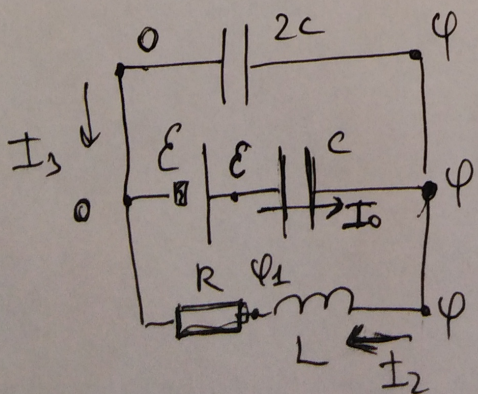 0 2C φ
I₃ ℰ ℰ C
0 I₀ φ
R φ1
L φ
I₂